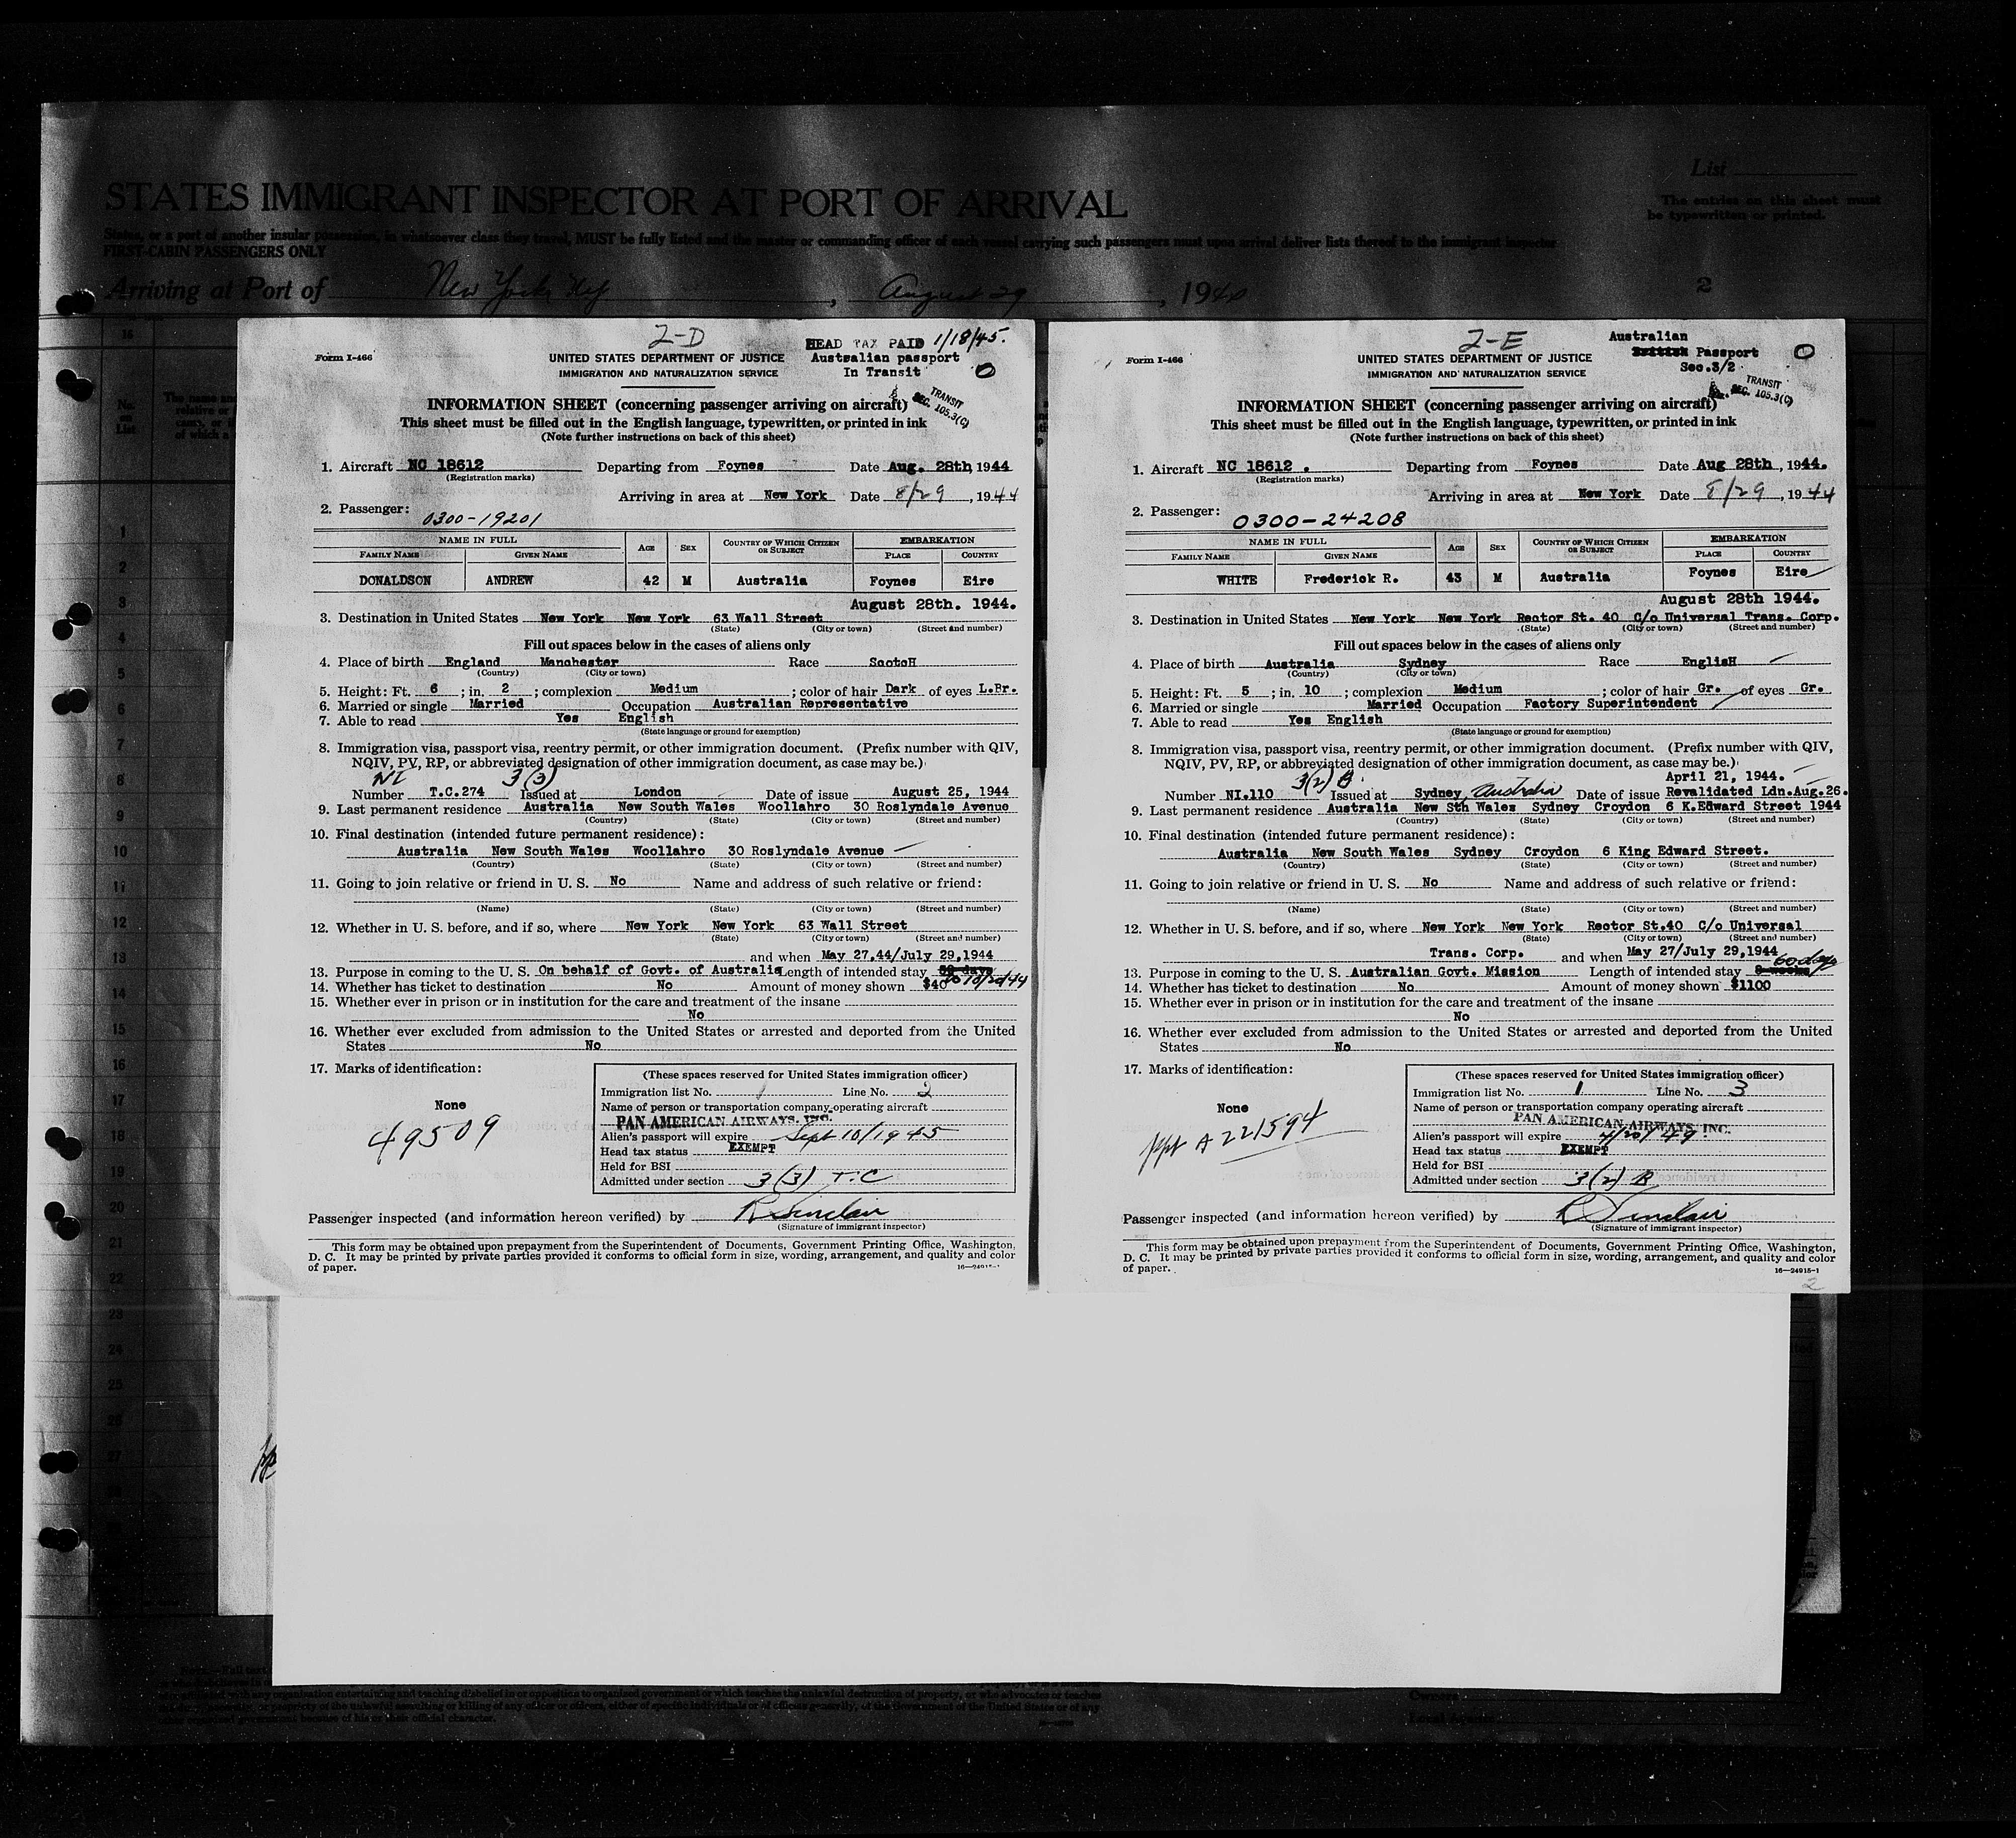 List
STATES IMMIGRANT INSPECTOR AT PORT OF ARRIVAL
The entries on this sheet must
be typewritten or printed.
States, or a part of another insular possession, in whatsoever class they travel, MUST be fully listed and the master or commanding officer of each vessel carrying such passengers must upon arrival deliver lists thereof to the immigrant inspector
FIRST-CABIN PASSENGERS ONLY
Arriving at Port of New York, , August 29, 1944 2
2-D
HEAD TAX PAID 1/18/45.
Form I-466
UNITED STATES DEPARTMENT OF JUSTICE
Australian passport
IMMIGRATION AND NATURALIZATION SERVICE
In Transit
TRANSIT
SEC. 105.3(C)
INFORMATION SHEET (concerning passenger arriving on aircraft)
This sheet must be filled out in the English language, typewritten, or printed in ink
(Note further instructions on back of this sheet)
1. Aircraft NC 18612 Departing from Foynes Date Aug. 28th, 1944
(Registration marks)
Arriving in area at New York Date 8/29, 1944
2. Passenger: 0300-19201
NAME IN FULL AGE SEX COUNTRY OF WHICH CITIZEN OR SUBJECT EMBARKATION
FAMILY NAME GIVEN NAME PLACE COUNTRY
DONALDSON ANDREW 42 M Australia Foynes Eire
August 28th. 1944.
3. Destination in United States New York New York 63 Wall Street
(State) (City or town) (Street and number)
Fill out spaces below in the cases of aliens only
4. Place of birth England Manchester Race ScotcH
(Country) (City or town)
5. Height: Ft. 6 ; in. 2 ; complexion Medium ; color of hair Dark of eyes L.Br.
6. Married or single Married Occupation Australian Representative
7. Able to read Yes English
(State language or ground for exemption)
8. Immigration visa, passport visa, reentry permit, or other immigration document. (Prefix number with QIV,
NQIV, PV, RP, or abbreviated designation of other immigration document, as case may be.)
NI 3(3)
Number T.C.274 Issued at London Date of issue August 25, 1944
9. Last permanent residence Australia New South Wales Woollahro 30 Roslyndale Avenue
(Country) (State) (City or town) (Street and number)
10. Final destination (intended future permanent residence):
Australia New South Wales Woollahro 30 Roslyndale Avenue
(Country) (State) (City or town) (Street and number)
11. Going to join relative or friend in U. S. No Name and address of such relative or friend:
(Name) (State) (City or town) (Street and number)
12. Whether in U. S. before, and if so, where New York New York 63 Wall Street
(State) (City or town) (Street and number)
and when May 27,44/July 29,1944
13. Purpose in coming to the U. S. On behalf of Govt. of Australia Length of intended stay
14. Whether has ticket to destination No Amount of money shown $40
15. Whether ever in prison or in institution for the care and treatment of the insane
No
16. Whether ever excluded from admission to the United States or arrested and deported from the United
States No
17. Marks of identification:
None
49509
(These spaces reserved for United States immigration officer)
Immigration list No. 1 Line No. 2
Name of person or transportation company operating aircraft
PAN AMERICAN AIRWAYS, INC.
Alien's passport will expire Sept 10/1945
Head tax status EXEMPT
Held for BSI
Admitted under section 3(3) T.C
Passenger inspected (and information hereon verified) by R Sinclair
(Signature of immigrant inspector)
This form may be obtained upon prepayment from the Superintendent of Documents, Government Printing Office, Washington,
D. C. It may be printed by private parties provided it conforms to official form in size, wording, arrangement, and quality and color
of paper.
16—24915-1
2-E
Australian
Form I-466
UNITED STATES DEPARTMENT OF JUSTICE
British Passport
IMMIGRATION AND NATURALIZATION SERVICE
Sec.3/2
TRANSIT
SEC. 105.3(C)
INFORMATION SHEET (concerning passenger arriving on aircraft)
This sheet must be filled out in the English language, typewritten, or printed in ink
(Note further instructions on back of this sheet)
1. Aircraft NC 18612 . Departing from Foynes Date Aug 28th, 1944.
(Registration marks)
Arriving in area at New York Date 8/29, 1944
2. Passenger: 0300-24208
NAME IN FULL AGE SEX COUNTRY OF WHICH CITIZEN OR SUBJECT EMBARKATION
FAMILY NAME GIVEN NAME PLACE COUNTRY
WHITE Frederick R. 43 M Australia Foynes Eire
August 28th 1944.
3. Destination in United States New York New York Rector St. 40 C/o Universal Trans. Corp.
(State) (City or town) (Street and number)
Fill out spaces below in the cases of aliens only
4. Place of birth Australia Sydney Race EnglisH
(Country) (City or town)
5. Height: Ft. 5 ; in. 10 ; complexion Medium ; color of hair Gr. of eyes Gr.
6. Married or single Married Occupation Factory Superintendent
7. Able to read Yes English
(State language or ground for exemption)
8. Immigration visa, passport visa, reentry permit, or other immigration document. (Prefix number with QIV,
NQIV, PV, RP, or abbreviated designation of other immigration document, as case may be.)
3(2) B. April 21, 1944.
Number NI.110 Issued at Sydney, Australia Date of issue Revalidated Ldn.Aug.26.
9. Last permanent residence Australia New Sth Wales Sydney Croydon 6 K.Edward Street 1944
(Country) (State) (City or town) (Street and number)
10. Final destination (intended future permanent residence):
Australia New South Wales Sydney Croydon 6 King Edward Street.
(Country) (State) (City or town) (Street and number)
11. Going to join relative or friend in U. S. No Name and address of such relative or friend:
(Name) (State) (City or town) (Street and number)
12. Whether in U. S. before, and if so, where New York New York Rector St.40 C/o Universal
(State) (City or town) (Street and number)
Trans. Corp. and when May 27/July 29,1944
13. Purpose in coming to the U. S. Australian Govt. Mission Length of intended stay 60 days
14. Whether has ticket to destination No Amount of money shown $1100
15. Whether ever in prison or in institution for the care and treatment of the insane
No
16. Whether ever excluded from admission to the United States or arrested and deported from the United
States No
17. Marks of identification:
None
ppt A 221594
(These spaces reserved for United States immigration officer)
Immigration list No. 1 Line No. 3
Name of person or transportation company operating aircraft
PAN AMERICAN AIRWAYS, INC.
Alien's passport will expire 4/20/49
Head tax status EXEMPT
Held for BSI
Admitted under section 3(2) B
Passenger inspected (and information hereon verified) by R Sinclair
(Signature of immigrant inspector)
This form may be obtained upon prepayment from the Superintendent of Documents, Government Printing Office, Washington,
D. C. It may be printed by private parties provided it conforms to official form in size, wording, arrangement, and quality and color
of paper.
16—24915-1
2